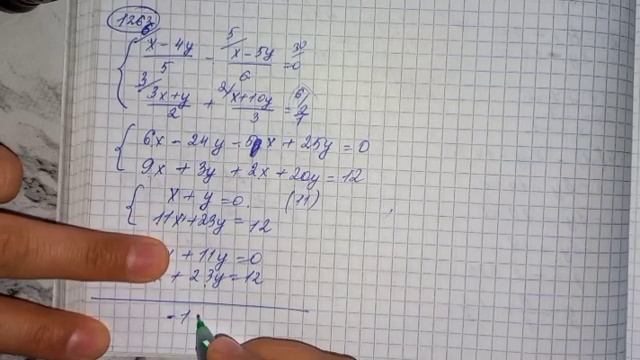 1263
6/ (x-4y)/5 - 5/ (x-5y)/6 = 30/ 0
3/ (3x+y)/2 + 2/ (x+10y)/3 = 6/ 2/1
6x - 24y - 5x + 25y = 0
9x + 3y + 2x + 20y = 12
x + y = 0 (11)
11x + 23y = 12
+ 11y = 0
+ 23y = 12
-1